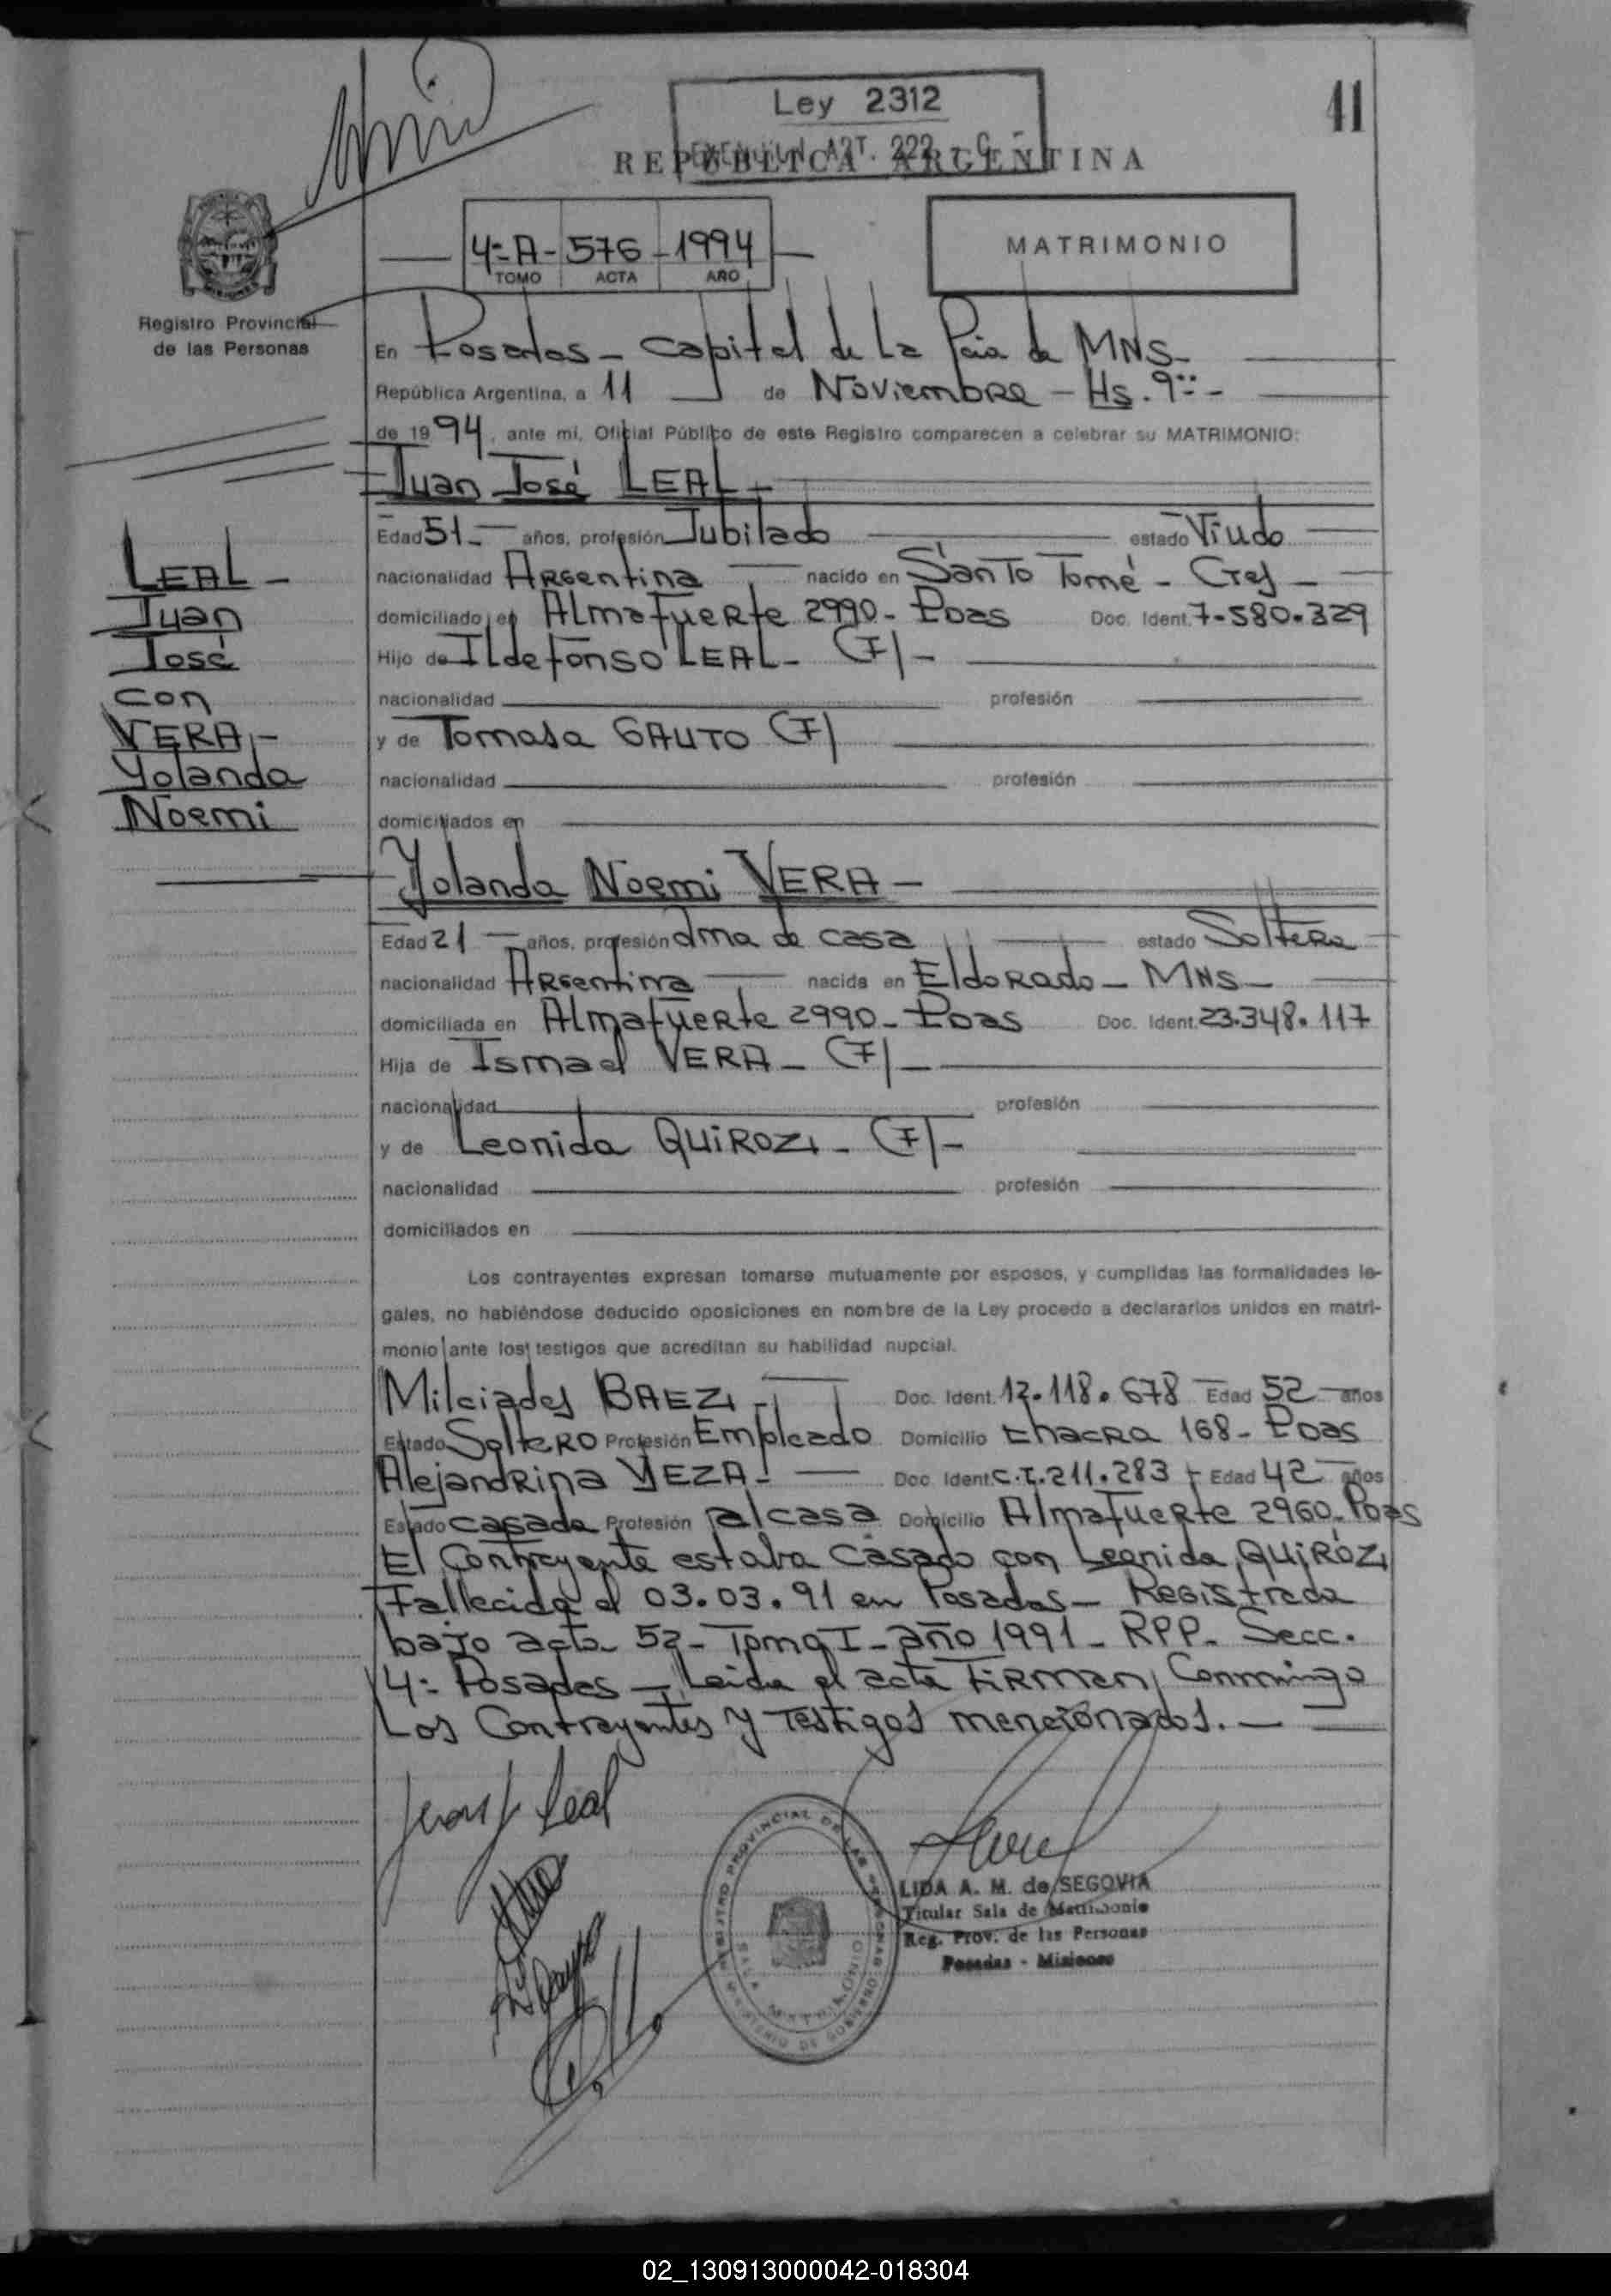 41
Ley 2312
ART. 222
REPUBLICA ARGENTINA
4=A- 576 - 1994
TOMO ACTA AÑO
MATRIMONIO
Registro Provincial
de las Personas
En Posadas - Capital de La Pcia de MNS-
República Argentina, a 11 de Noviembre - Hs. 9
de 1994, ante mi, Oficial Público de este Registro comparecen a celebrar su MATRIMONIO:
Juan José LEAL -
Edad 51 - años, profesión Jubilado estado Viudo
nacionalidad Argentina nacido en Santo Tomé - Ctes -
domiciliado en Almafuerte 2990 - Pdas Doc. Ident. 7-580.329
Hijo de Ildefonso LEAL - (F) -
nacionalidad profesión
y de Tomasa GAUTO (F)
nacionalidad profesión
domiciliados en
LEAL -
Juan
José
con
VERA -
Yolanda
Noemi
Yolanda Noemi VERA -
Edad 21 - años, profesión ama de casa estado Soltera
nacionalidad Argentina nacida en Eldorado - MNS -
domiciliada en Almafuerte 2990 - Pdas Doc. Ident. 23.348.117
Hija de Ismael VERA - (F) -
nacionalidad profesión
y de Leonida QUIROZ - (F) -
nacionalidad profesión
domiciliados en
Los contrayentes expresan tomarse mutuamente por esposos, y cumplidas las formalidades le-
gales, no habiéndose deducido oposiciones en nombre de la Ley procedo a declararlos unidos en matri-
monio ante los testigos que acreditan su habilidad nupcial.
Milciades BAEZ - Doc. Ident. 12.118.678 Edad 52 años
Estado Soltero Profesión Empleado Domicilio Chacra 168 - Pdas
Alejandrina YEZA - Doc. Ident. C.I. 211.283 Edad 42 años
Estado casada Profesión a/casa Domicilio Almafuerte 2960 - Pdas
El Contrayente estaba casado con Leonida QUIROZ
Fallecida el 03.03.91 en Posadas - Registrada
bajo acta 52 - Tomo I - año 1991 - RPP - Secc.
4= Posadas - Leida el acta Firman Conmingo
Los Contrayentes y Testigos mencionados. -
Juan J Leal
REGISTRO PROVINCIAL DE LAS PERSONAS
MINISTERIO DE GOBIERNO
SALA MATRIMONIO
LIDA A. M. de SEGOVIA
Titular Sala de Matrimonio
Reg. Prov. de las Personas
Posadas - Misiones
02_130913000042-018304